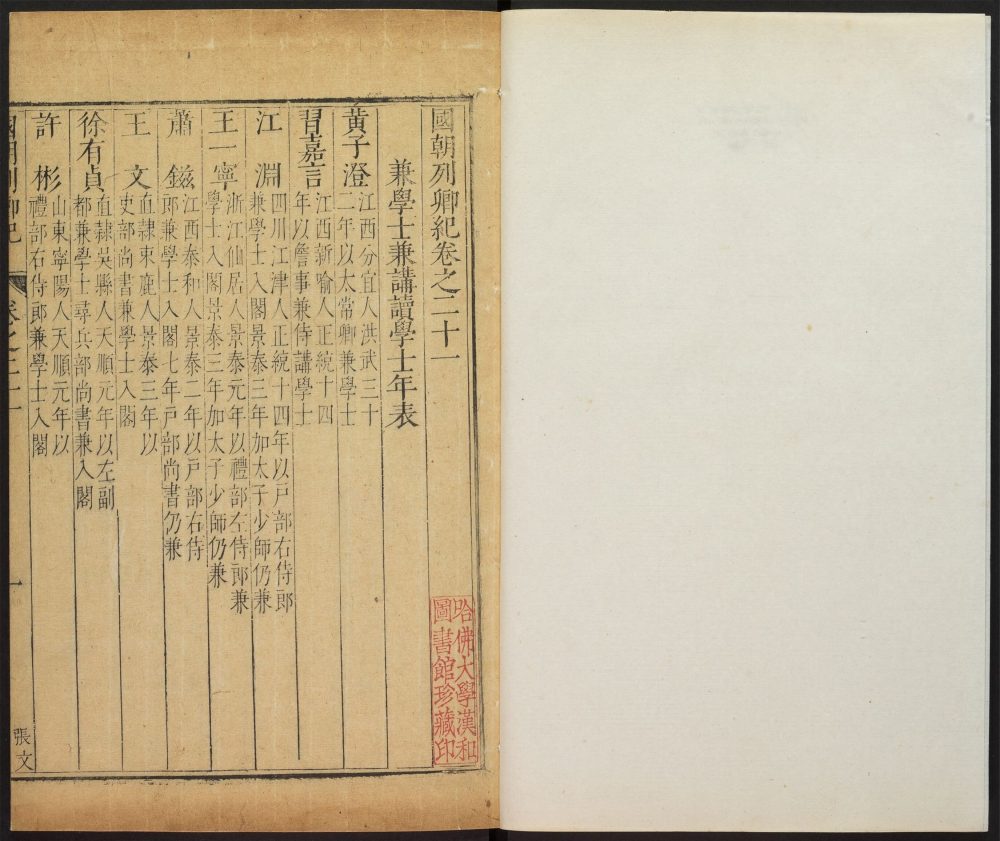 國朝列卿紀卷之二十一
兼學士兼講讀學士年表
黃子澄
江西分宜人洪武三十
二年以太常卿兼學士
習嘉言
江西新喻人正統十四
年以詹事兼侍講學士
江淵
四川江津人正統十四年以戶部右侍郎
兼學士入閣景泰三年加太子少師仍兼
王一寧
浙江仙居人景泰元年以禮部左侍郎兼
學士入閣景泰三年加太子少師仍兼
蕭鎡
江西泰和人景泰二年以戶部右侍
郎兼學士入閣七年戶部尚書仍兼
王文
直隸束鹿人景泰三年以
吏部尚書兼學士入閣
徐有貞
直隸吳縣人天順元年以左副
都兼學士尋兵部尚書兼入閣
許彬
山東寧陽人天順元年以
禮部右侍郎兼學士入閣
國朝列卿紀 卷之二十一 一
張文
哈佛大學漢和
圖書館珍藏印